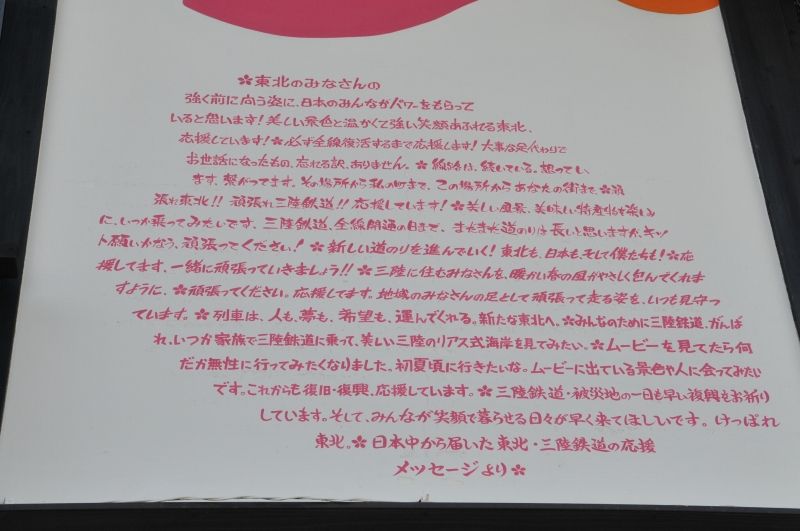 ✿東北のみなさんの
強く前に向う姿に、日本のみんながパワーをもらって
いると思います!美しい景色と温かくて強い笑顔あふれる東北、
応援しています!✿必ず全線復活するまで応援します!大事な足代わりで
お世話になったもの、忘れる訳、ありません。✿線路は、続いている。想ってい
ます、繋がってます。その場所から私の町まで、この場所からあなたの街まで。✿頑
張れ東北!!頑張れ三陸鉄道!!応援しています!✿美しい風景、美味しい特産物を楽しみ
に、いつか乗ってみたいです、三陸鉄道、全線開通の日まで、まだまだ道のりは長いと思いますが、キッ
ト願いかなう、頑張ってください!✿新しい道のりを進んでいく!東北も、日本も、そして僕たちも!✿応
援してます、一緒に頑張っていきましょう!!✿三陸に住むみなさんを、暖かい春の風がやさしく包んでくれま
すように、✿頑張ってください。応援してます。地域のみなさんの足として頑張って走る姿を、いつも見守っ
ています。✿列車は、人も、夢も、希望も、運んでくれる。新たな東北へ。✿みんなのために三陸鉄道、がんば
れ、いつか家族で三陸鉄道に乗って、美しい三陸のリアス式海岸を見てみたい。✿ムービーを見てたら何
だか無性に行ってみたくなりました。初夏頃に行きたいな。ムービーに出ている景色や人に会ってみたい
です。これからも復旧・復興、応援しています。✿三陸鉄道・被災地の一日も早い復興をお祈り
しています。そして、みんなが笑顔で暮らせる日々が早く来てほしいです。けっぱれ
東北。✿日本中から届いた東北・三陸鉄道の応援
メッセージより✿